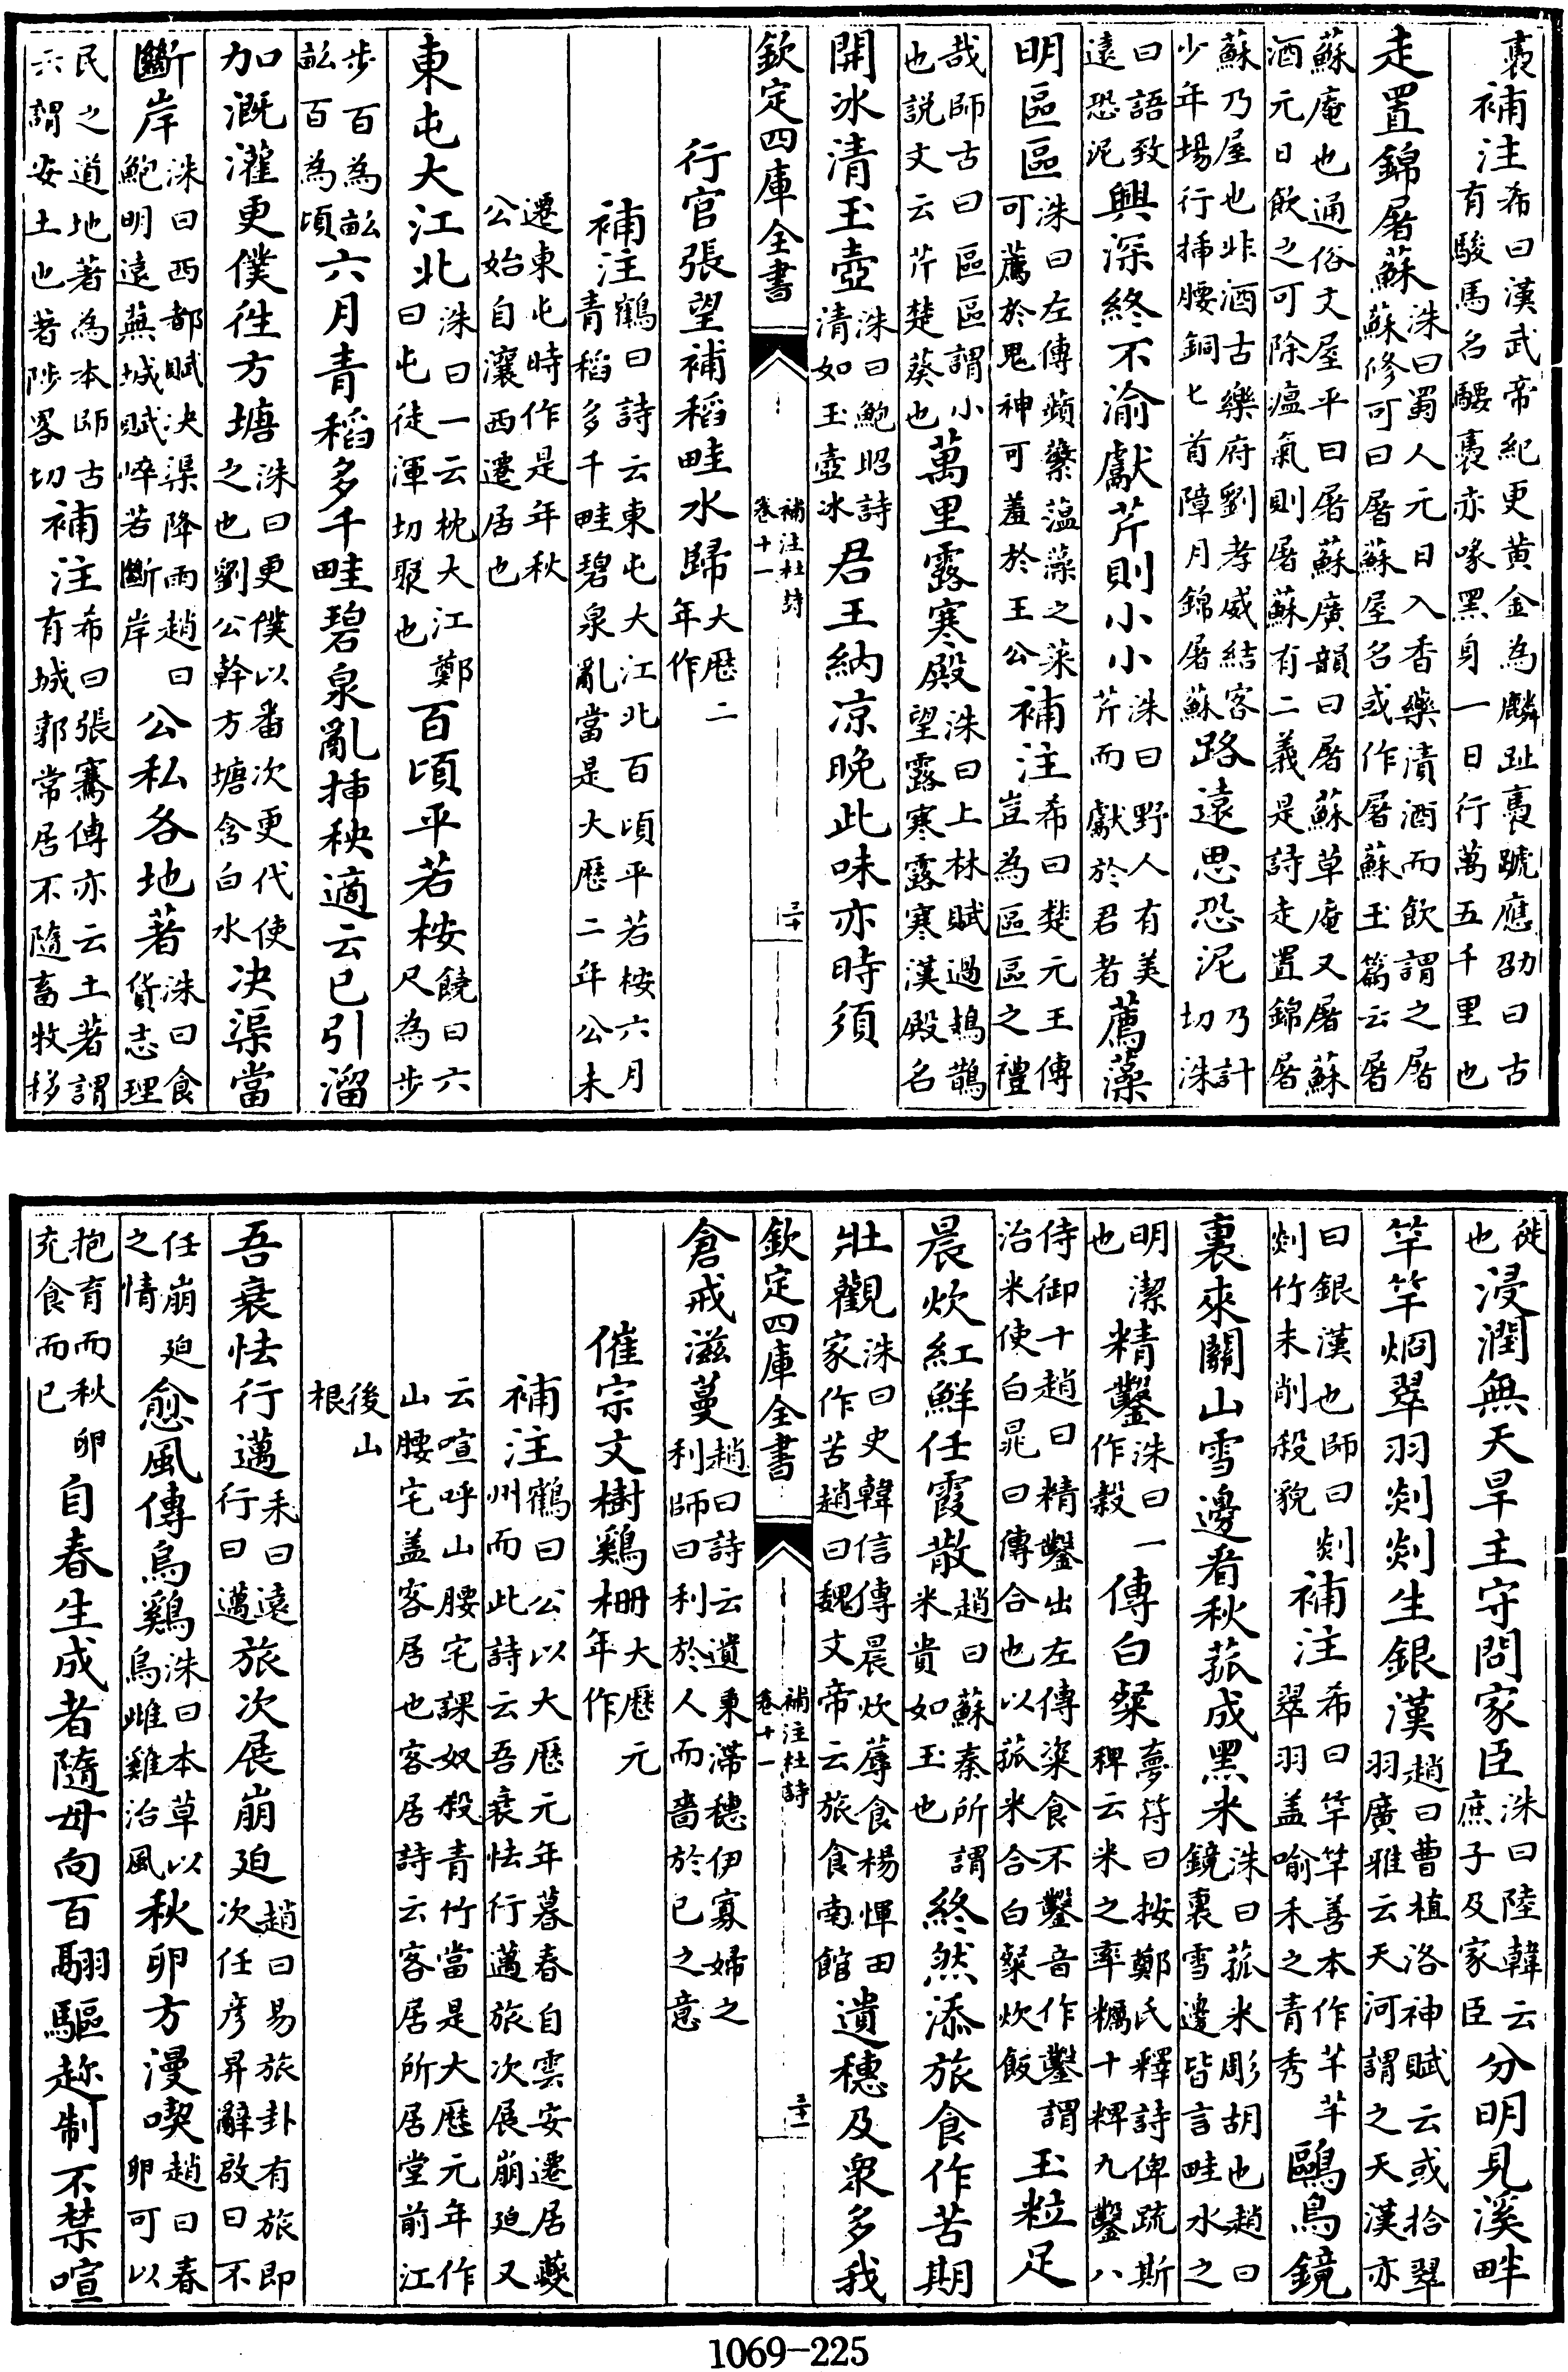 褭補注希曰漢武帝紀更黄金為麟趾褭號應劭曰古有駿馬名騕褭赤喙黑身一日行萬五千里也
走置錦屠蘇洙曰蜀人元日入香藥漬酒而飲謂之屠蘇修可曰屠蘇屋名或作屠蘇玉篇云屠
蘇庵也通俗文屋平曰屠蘇廣韻曰屠蘇草庵又屠蘇酒元日飲之可除瘟氣則屠蘇有二義是詩走置錦屠
蘇乃屋也非酒古樂府劉孝威結客少年場行揷腰銅匕首障月錦屠蘇路遠思恐泥乃計切洙
曰語致遠恐泥興深終不渝獻芹則小小洙曰野人有美芹而獻於君者薦藻
明區區洙曰左傳蘋蘩薀藻之菜可薦於鬼神可羞於王公補注希曰楚元王傳豈為區區之禮
哉師古曰區區謂小也説文云芹楚葵也萬里露寒殿洙曰上林賦過鳷鵲望露寒露寒漢殿名
開冰清玉壺洙曰鮑昭詩清如玉壺冰君王納凉晚此味亦時須
欽定四庫全書 補注杜詩 卷十一 三十
行官張望補稻畦水歸大厯二年作
補注鶴曰詩云東屯大江北百頃平若桉六月青稻多千畦碧泉亂當是大厯二年公未
遷東屯時作是年秋公始自瀼西遷居也
東屯大江北洙曰一云枕大江鄭曰屯徒渾切聚也百頃平若桉饒曰六尺為步
步百為畝畝百為頃六月青稻多千畦碧泉亂揷秧適云已引溜
加溉灌更僕徃方塘洙曰更僕以番次更代使之也劉公幹方塘含白水决渠當
斷岸洙曰西都賦决渠降雨趙曰鮑明遠蕪城賦崪若斷岸公私各地著洙曰食貨志理
民之道地著為本師古云謂安土也著陟畧切補注希曰張騫傳亦云土著謂有城郭常居不隨畜牧移
徙也浸潤無天旱主守問家臣洙曰陸韓云庶子及家臣分明見溪畔
竿竿烱翠羽剡剡生銀漢趙曰曹植洛神賦云或拾翠羽廣雅云天河謂之天漢亦
曰銀漢也師曰剡剡竹末削殺貌補注希曰竿竿善本作芊芊翠羽盖喻禾之青秀鷗鳥鏡
裏來關山雪邊看秋菰成黑米洙曰菰米彫胡也趙曰鏡裏雪邊皆言畦水之
明潔也精鑿洙曰一作榖傳白粲夢符曰按鄭氏釋詩俾疏斯稗云米之率糲十粺九鑿八
侍御十趙曰精鑿出左傳粢食不鑿音作鑿謂治米使白晁曰傳合也以菰米合白粲炊飯玉粒足
晨炊紅鮮任霞散趙曰蘇秦所謂米貴如玉也終然添旅食作苦期
壯觀洙曰史韓信傳晨炊蓐食楊惲田家作苦趙曰魏文帝云旅食南館遺穗及衆多我
欽定四庫全書 補注杜詩 卷十一 三十一
倉戒滋蔓趙曰詩云遺秉滯穗伊寡婦之利師曰利於人而嗇於已之意
催宗文樹鷄栅大厯元年作
補注鶴曰公以大厯元年暮春自雲安遷居夔州而此詩云吾衰怯行邁旅次展崩廹又
云喧呼山腰宅課奴殺青竹當是大厯元年作山腰宅盖客居也客居詩云客居所居堂前江
後山根
吾衰怯行邁禾曰遠行曰邁旅次展崩廹趙曰易旅卦有旅即次任彦昇辭啟曰不
任崩廹之情愈風傳烏鷄洙曰本草以烏雌雞治風秋卵方漫喫趙曰春卵可以
抱育而秋卵充食而已自春生成者隨母向百翮驅趂制不禁喧
1069-225